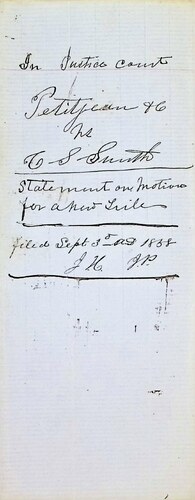 In Justice court
Petitjean & C
vs
C S Smith
Statement on Motion
for a New Trile
filed Sept 3d AD 1858
J H J.P.